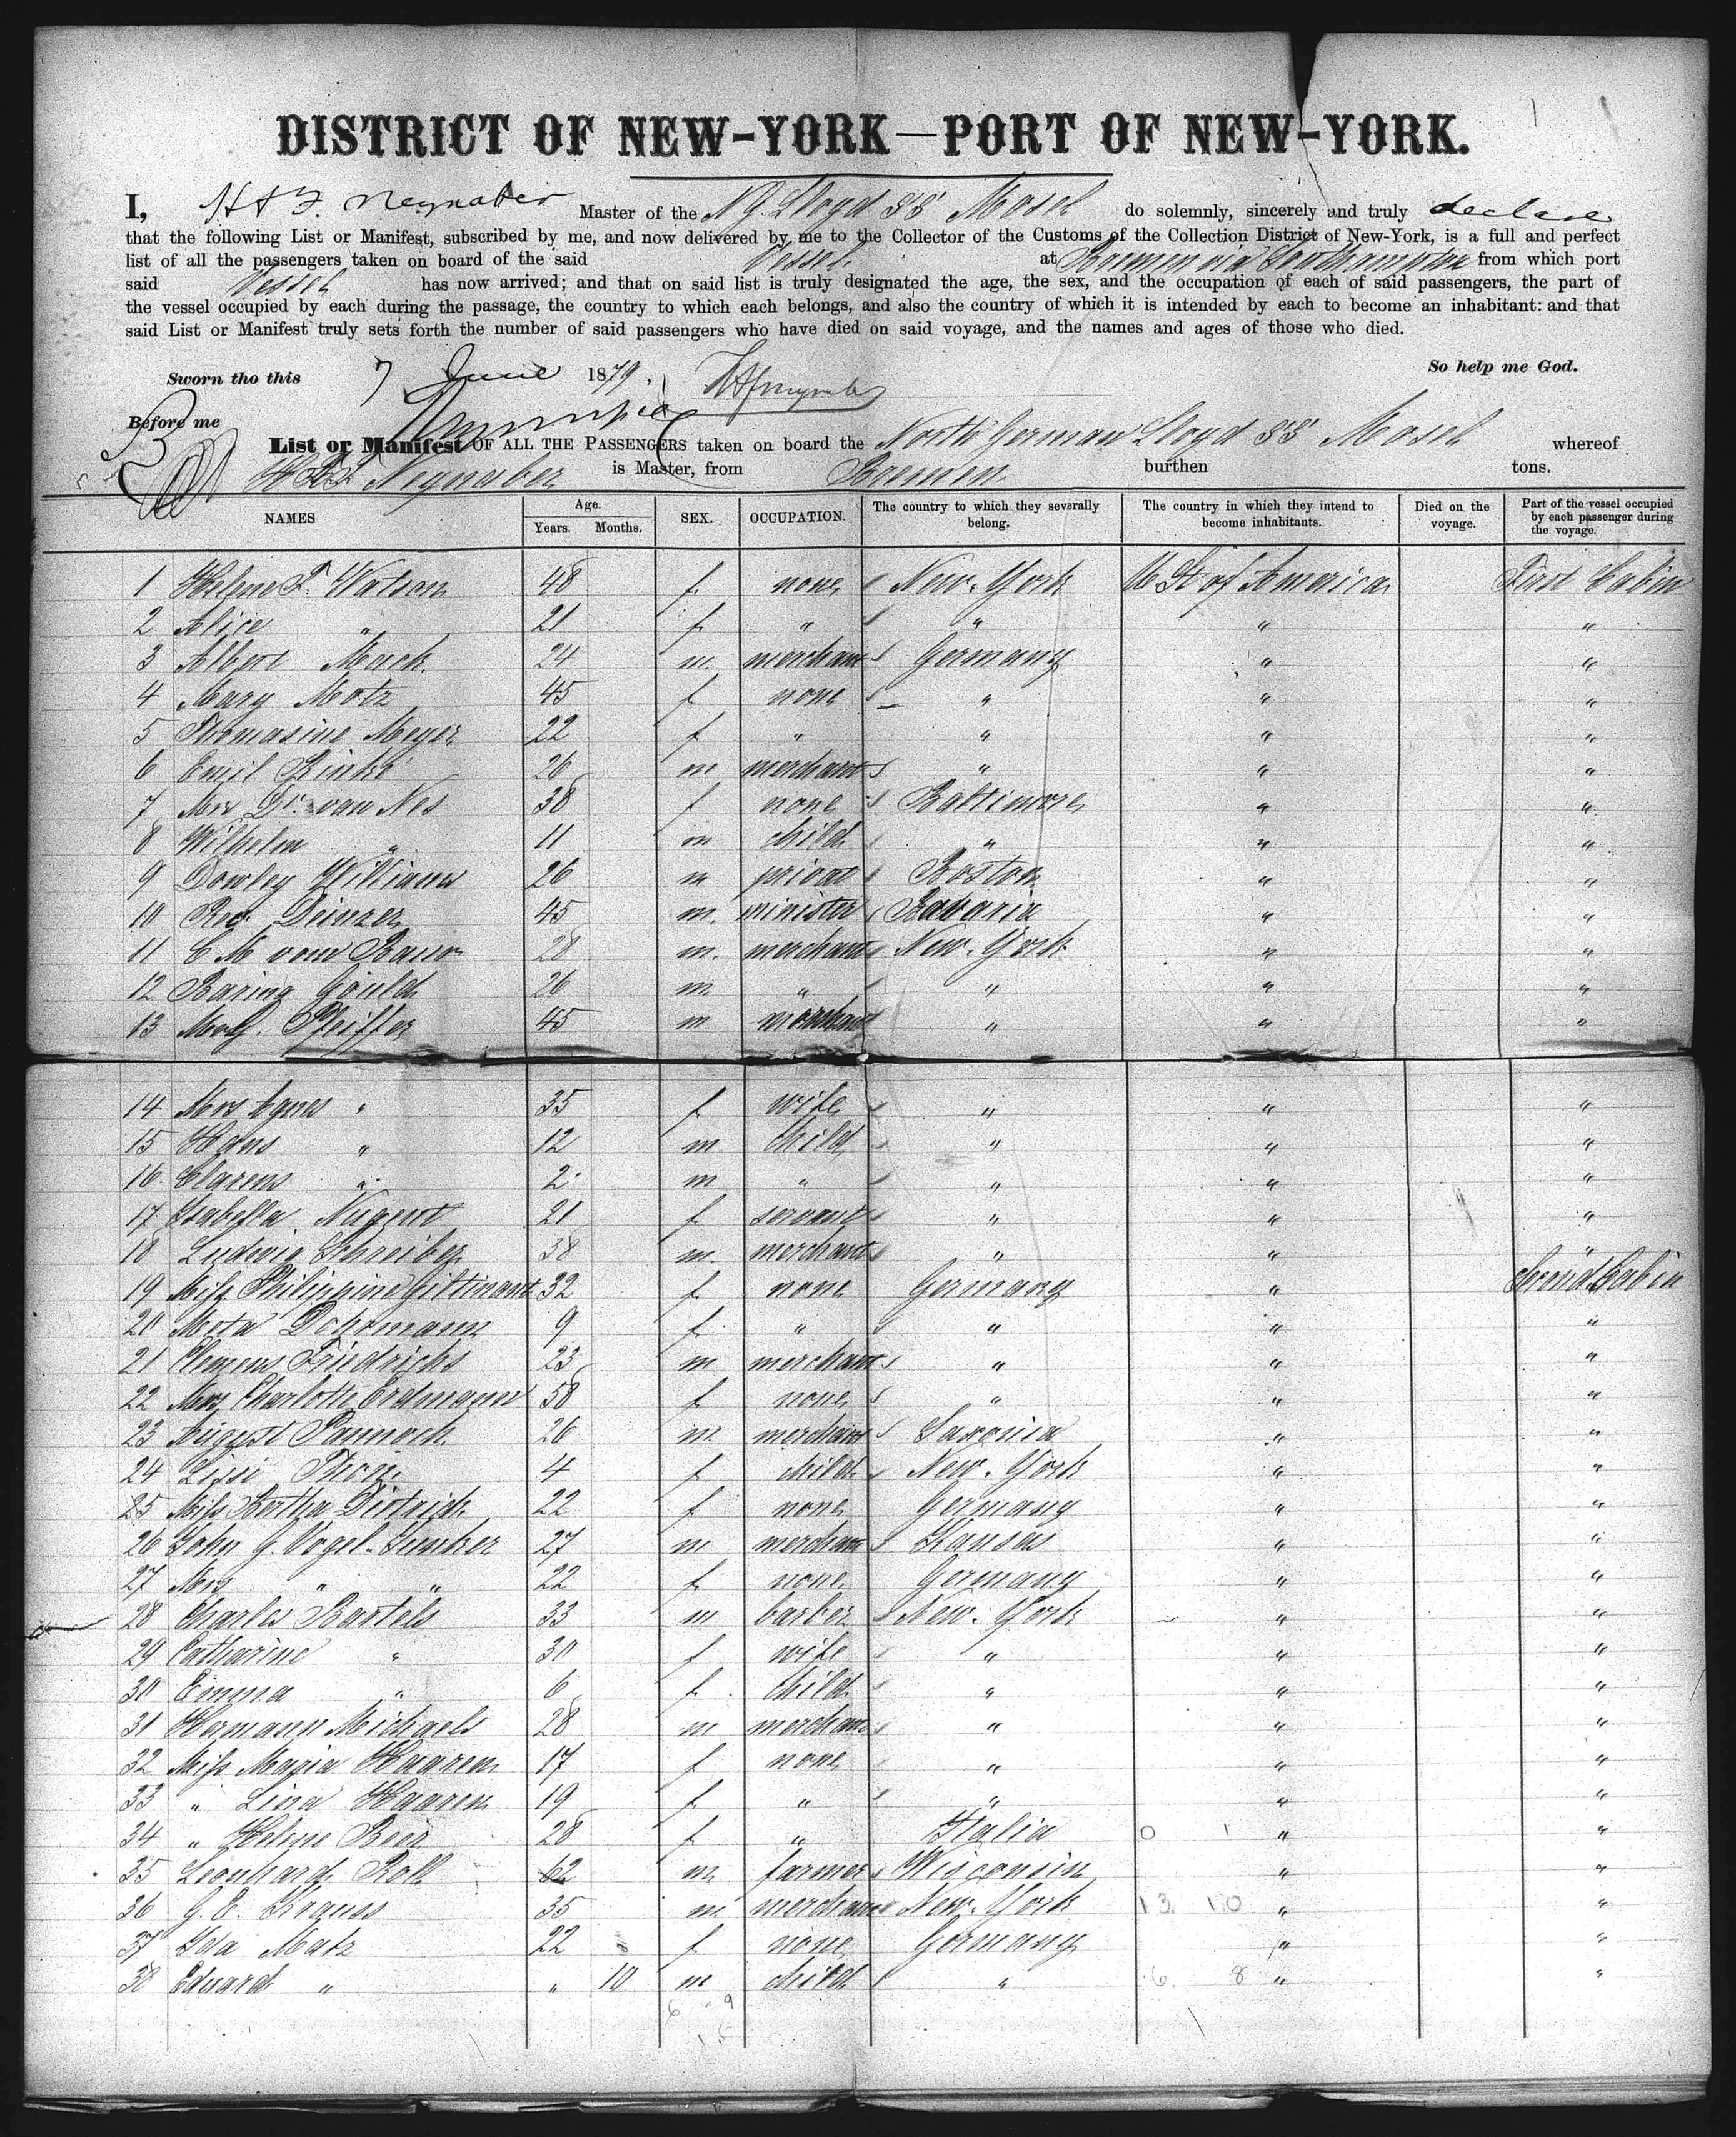 DISTRICT OF NEW-YORK—PORT OF NEW-YORK.
I, H A F. Neynaber Master of the N G. Lloyd SS Mosel do solemnly, sincerely and truly declare
that the following List or Manifest, subscribed by me, and now delivered by me to the Collector of the Customs of the Collection District of New-York, is a full and perfect
list of all the passengers taken on board of the said Vessel. at Bremen via Southampton from which port
said Vessel has now arrived; and that on said list is truly designated the age, the sex, and the occupation of each of said passengers, the part of
the vessel occupied by each during the passage, the country to which each belongs, and also the country of which it is intended by each to become an inhabitant: and that
said List or Manifest truly sets forth the number of said passengers who have died on said voyage, and the names and ages of those who died.
So help me God.
Sworn tho this 7 June 1879. HAFNeynaber
Before me
List or Manifest OF ALL THE PASSENGERS taken on board the North German Lloyd SS Mosel whereof
Neynaber is Master, from Bremen. burthen tons.
NAMES Age. Years. Months. SEX. OCCUPATION. The country to which they severally belong. The country in which they intend to become inhabitants. Died on the voyage. Part of the vessel occupied by each passenger during the voyage.
1 Helene F. Watson 48 f. none New-York U St of America First Cabin
2 Alice " 21 f " " " "
3 Albert Mack 24 m. merchant Germany " "
4 Mary Motz 45 f none " " "
5 Thomasine Meyer 22 f " " " "
6 Emil Rinke 26 m merchant " " "
7 Mrs Dr. van Nes 38 f none Baltimore " "
8 Wilhelm " 11 m child " " "
9 Dowley Williams 26 m privat Boston " "
10 Rev. Deinzer 45 m. minister Bavaria " "
11 C M vom Baur 28 m. merchant New-York " "
12 Baring Gould 26 m " " " "
13 Pfeiffer 45 m merchant " " "
14 Mrs Agnes " 35 f wife " " "
15 Hans " 12 m child " " "
16 Clarens " 2 m " " " "
17 Isabella Nugent 21 f. servant " " "
18 Ludwig Schreiber 38 m. merchant " " "
19 Miss Philippine 32 f none Germany " Second Cabin
20 Meta Dohrmann 9 f. " " " "
21 Clemens Friedrichs 23 m merchant " " "
22 Mrs Charlotte Erdmann 58 f none " " "
23 August Pannoch 26 m. merchant Saxonia " "
24 Lissi 4 f child New-York " "
25 Miss Bertha Dietrich 22 f. none Germany " "
26 John G. Vogel-Junker 27 m merchant Kansas " "
27 Mrs " " 22 f. none Germany " "
28 Charles Bartels 33 m barber New-York " "
29 Catharine " 30 f wife " " "
30 Emma " 6 f. child " " "
31 Hermann Michaels 28 m merchant " " "
32 Miss Maria Haaren 17 f none " " "
33 " Lina Haaren 19 f. " " " "
34 " Helene 28 f " Italia " "
35 Leonhard Roll 62 m farmer Wisconsin " "
36 G. E. Krauss 35 m. merchant New-York 13. 10 " "
37 Ida Matz 22 f none Germany " "
38 Eduard " " 10 m child " 6. 8 " "
6 9
15